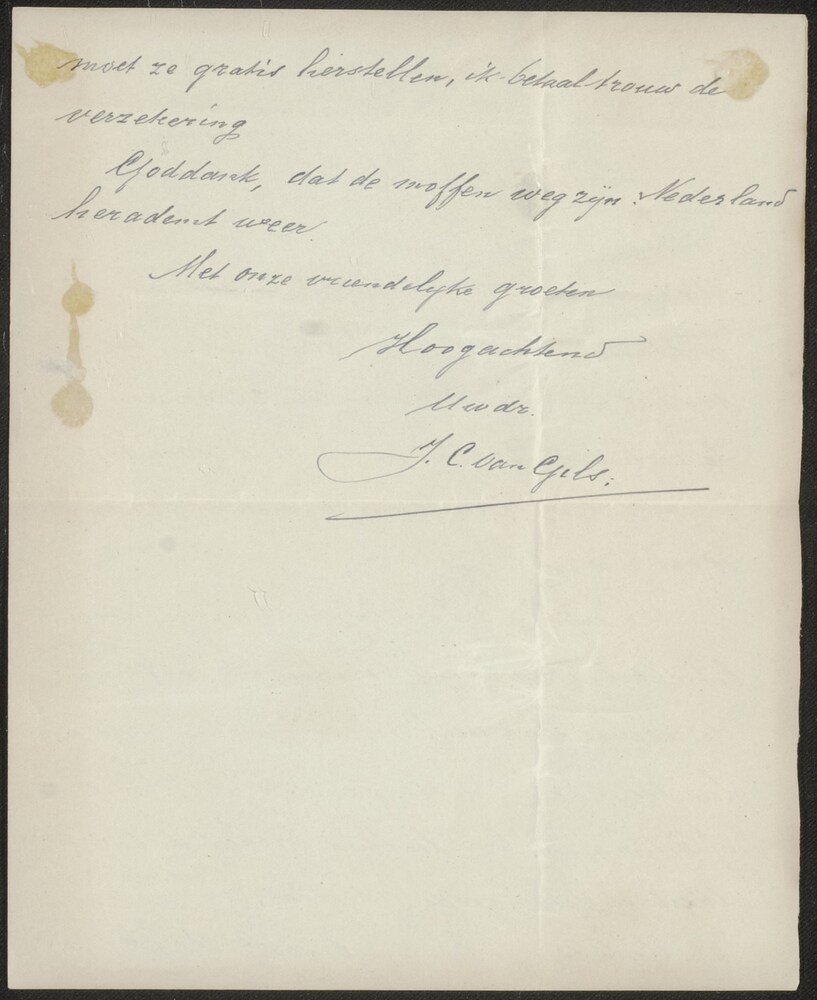 moet ze gratis herstellen, ik betaal trouw de
verzekering
Goddank, dat de moffen weg zijn. Nederland
herademt weer
Met onze vriendelijke groeten
Hoogachtend
Uwdr.
J. C. van Gils.